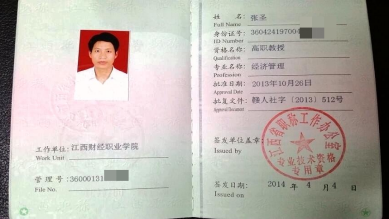 工作单位:江西财经职业学院
Work Unit
管理号:36000131
File No.
姓名:张圣
Full Name
身份证号:360424197004
ID Number
资格名称:高职教授
Qualification
专业名称:经济管理
Profession
批准日期:2013年10月26日
Approval Date
批复文件:赣人社字〔2013〕512号
Approval Document
签发单位盖章:
Issued by
江西省职称工作办公室
专业技术资格
专用章
签发日期:2014年4月4日
Issued on